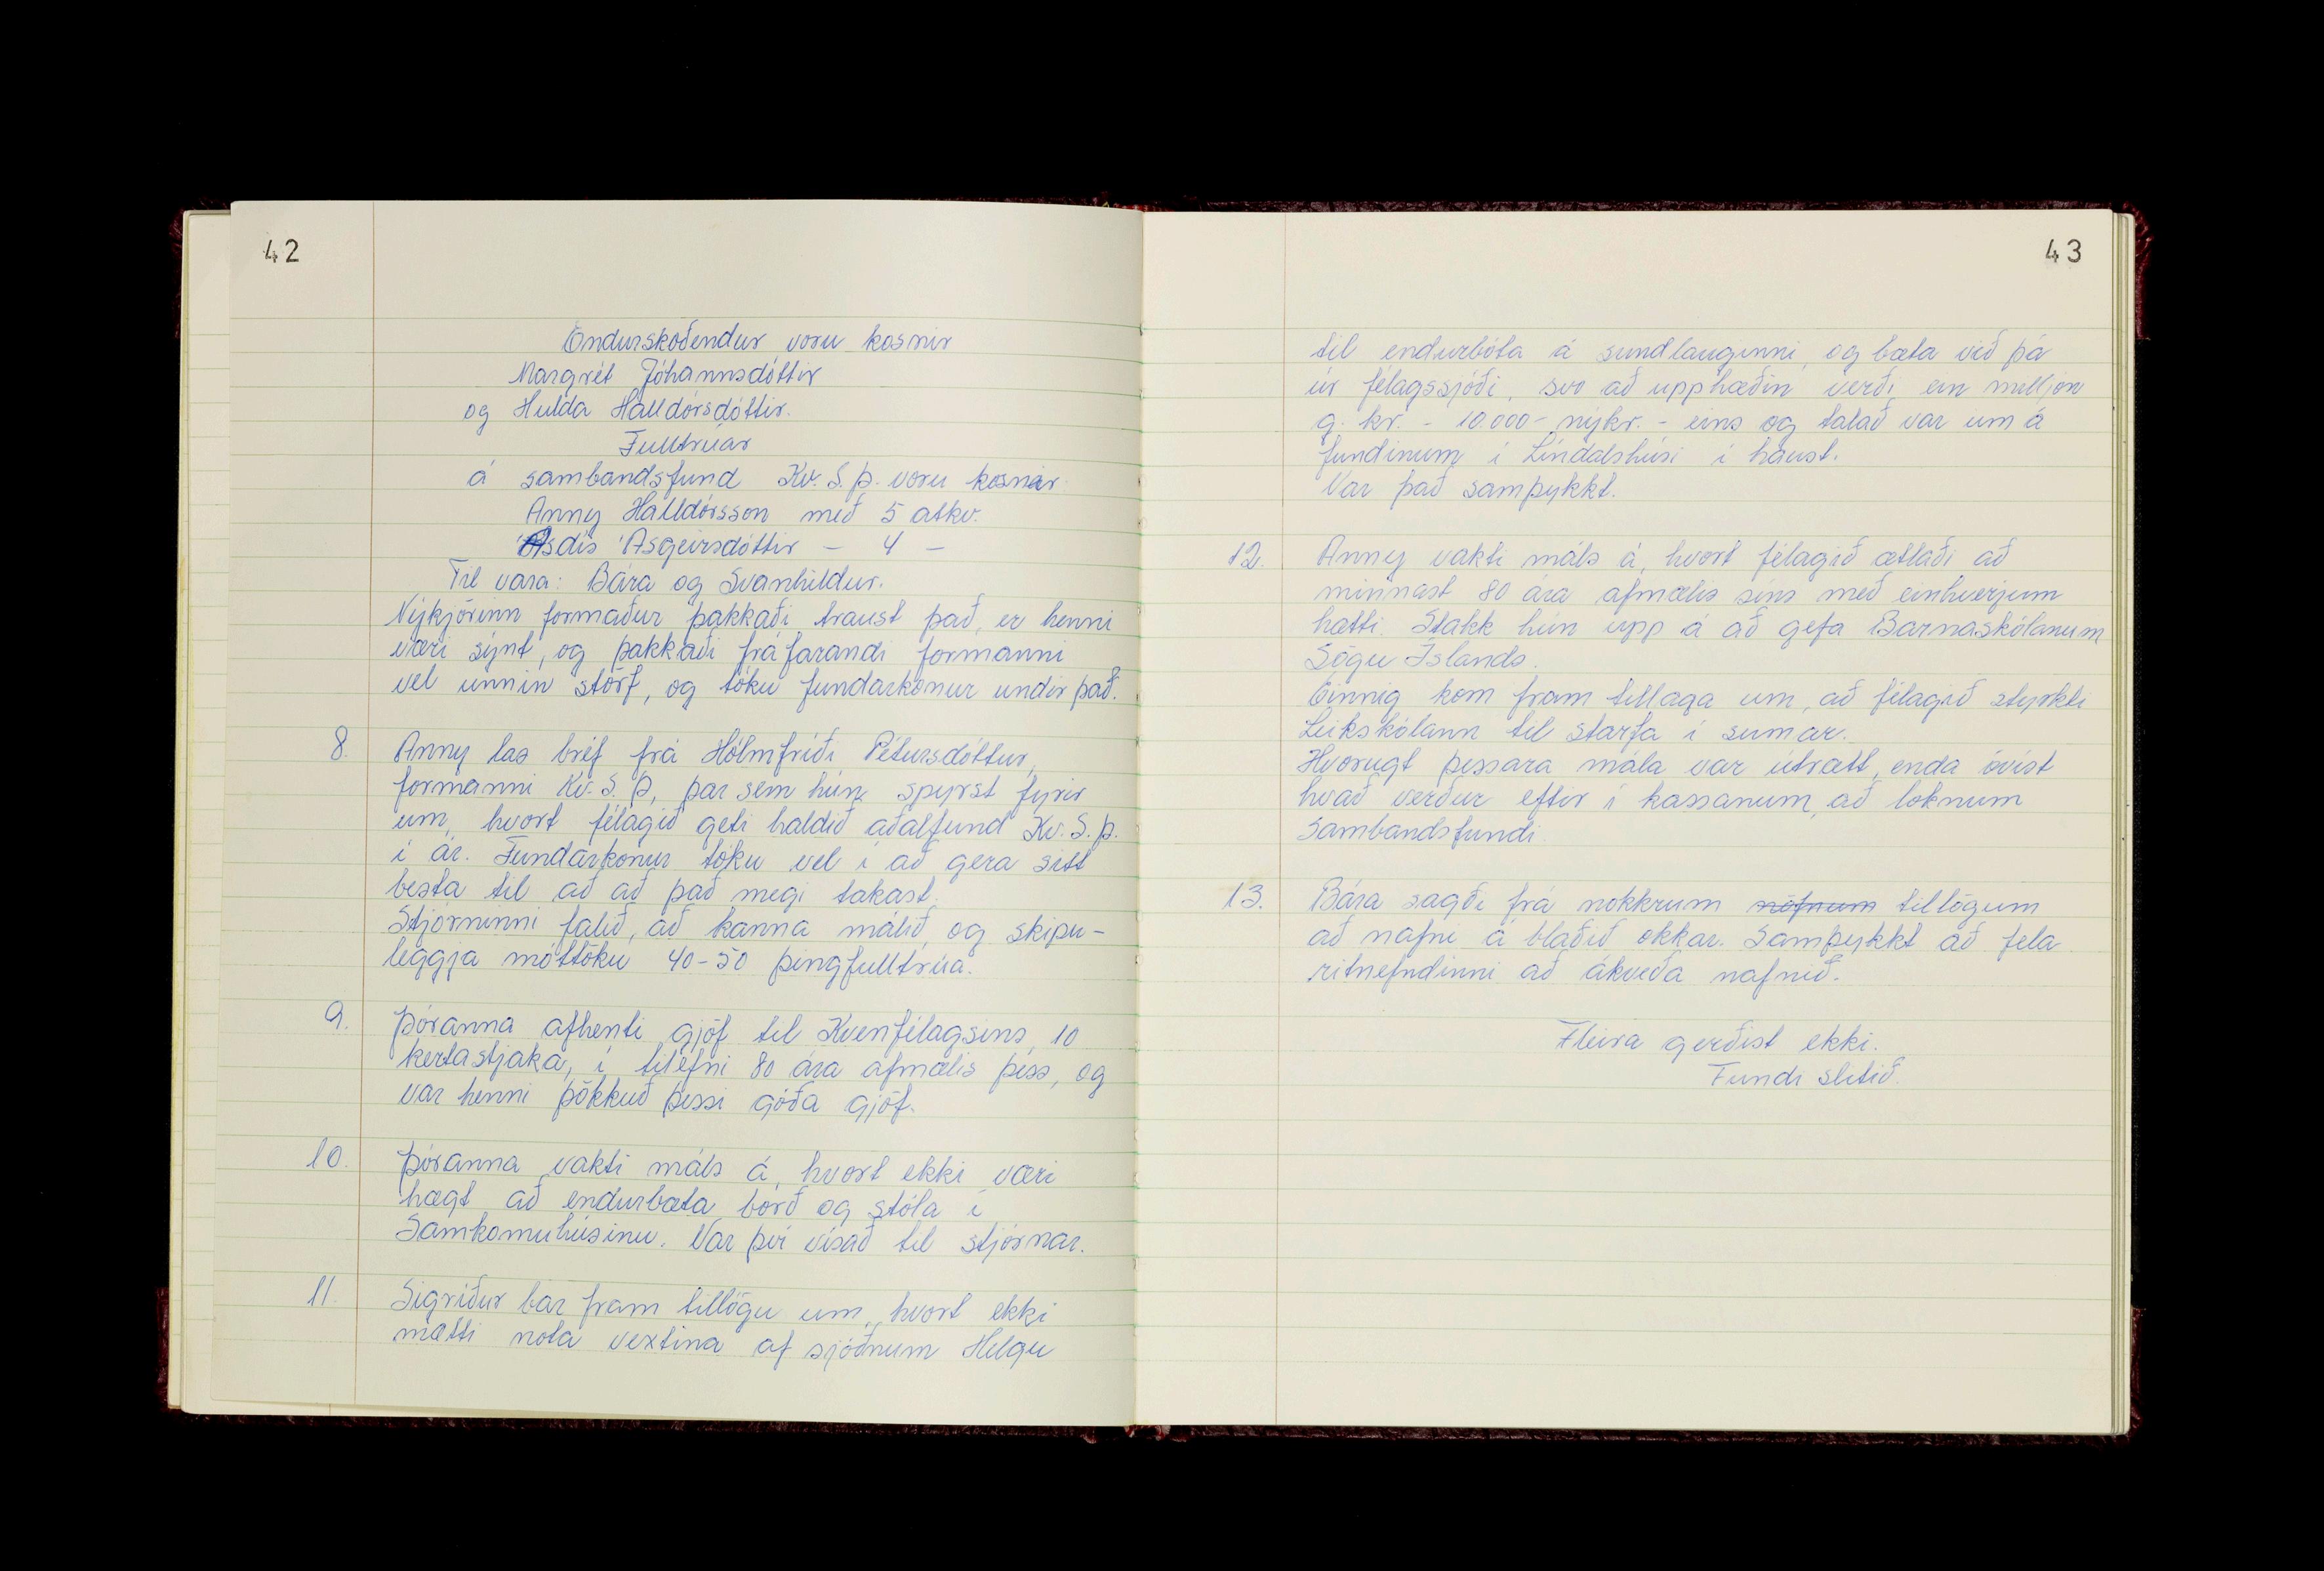 42
Endurskoðendur voru kosnir
Margrét Jóhannsdóttir
og Hulda Halldórsdóttir.
Fulltrúar
á sambandsfund Kv. S. Þ. voru kosnir
Anny Halldórsson með 5 atkv.
Ásdís Ásgeirsdóttir - 4 -
Til vara: Bára og Svanhildur.
Nýkjörinn formaður þakkaði traust það, er henni
væri sýnt, og þakkaði fráfarandi formanni
vel unnin störf, og tóku fundarkonur undir það.
8. Anny las bréf frá Hólmfríði Pétursdóttur,
formanni Kv. S. Þ, þar sem hún spyrst fyrir
um, hvort félagið geti haldið aðalfund Kv. S. Þ.
í ár. Fundarkonur tóku vel í að gera sitt
besta til að að það megi takast.
Stjórninni falið, að kanna málið, og skipu-
leggja móttöku 40-50 þingfulltrúa.
9. Þóranna afhenti gjöf til Kvenfélagsins, 10
kertastjaka, í tilefni 80 ára afmælis þess, og
var henni þökkuð þessi góða gjöf.
10. Þóranna vakti máls á, hvort ekki væri
hægt að endurbæta borð og stóla í
Samkomuhúsinu. Var því vísað til stjórnar.
11. Sigríður bar fram tillögu um, hvort ekki
mætti nota vextina af sjóðnum Helgu
43
til endurbóta á sundlauginni, og bæta við þá
úr félagssjóði, svo að upphæðin verði ein milljón
g. kr. - 10.000 - nýkr. - eins og talað var um á
fundinum í Líndalshúsi í haust.
Var það samþykkt.
12. Anny vakti máls á, hvort félagið ætlaði að
minnast 80 ára afmælis síns með einhverjum
hætti. Stakk hún upp á að gefa Barnaskólanum
Sögu Íslands.
Einnig kom fram tillaga um, að félagið styrkti
Leikskólann til starfa í sumar.
Hvorugt þessara mála var útrætt, enda óvíst
hvað verður eftir í kassanum, að loknum
Sambandsfundi.
13. Bára sagði frá nokkrum nöfnum tillögum
að nafni á blaðið okkar. Samþykkt að fela
ritnefndinni að ákveða nafnið.
Fleira gerðist ekki.
Fundi slitið.